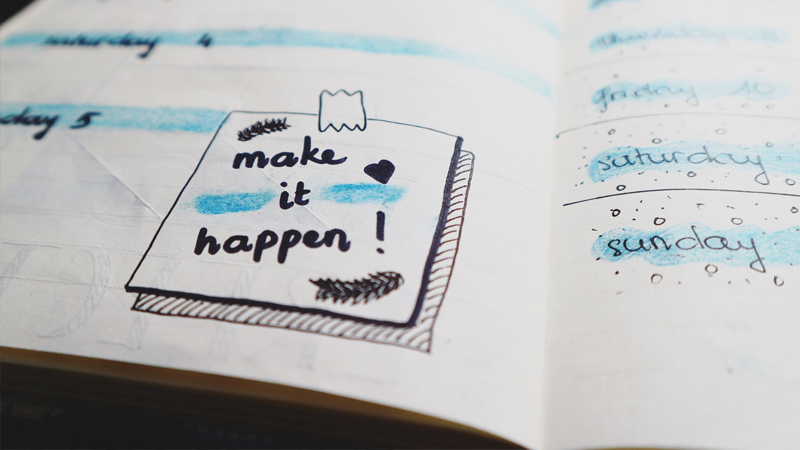 saturday 4
day 5
make
it
happen!
thursday
friday 10
saturday
sunday